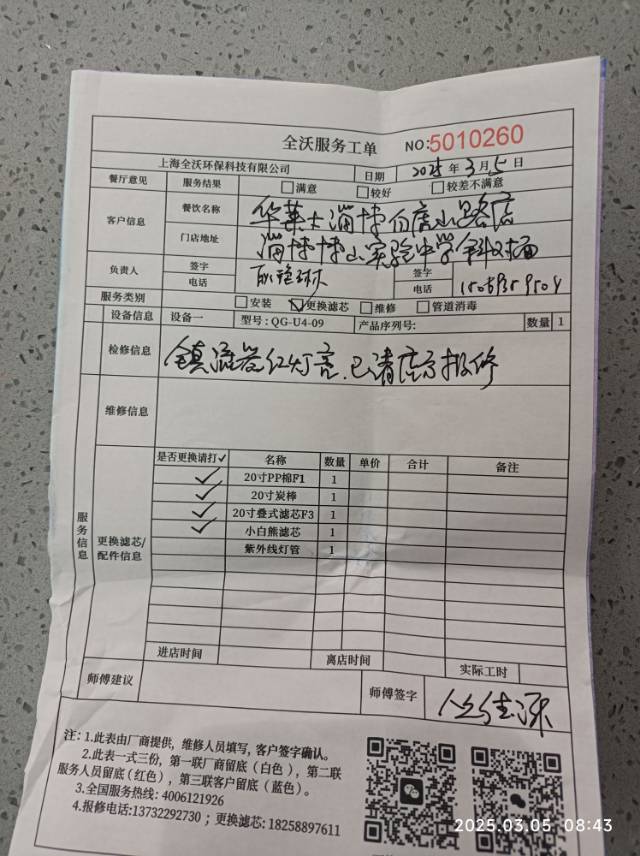 全沃服务工单 NO:5010260
上海全沃环保科技有限公司 日期 2025年3月5日
餐厅意见 服务结果 □满意 □较好 □较差不满意
客户信息 餐饮名称 华莱士淄博白虎山路店
门店地址 淄博博山实验中学斜对面
负责人 签字 签字
电话 电话
服务类别 □安装 ☑更换滤芯 □维修 □管道消毒
设备信息 设备一 型号:QG-U4-09 产品序列号: 数量 1
检修信息 镇流器红灯亮.已请店方报修
维修信息
服务信息
更换滤芯/配件信息
是否更换请打✓ 名称 数量 单价 合计 备注
✓ 20寸PP棉F1 1
✓ 20寸炭棒 1
✓ 20寸叠式滤芯F3 1
✓ 小白熊滤芯 1
紫外线灯管 1
进店时间 离店时间 实际工时
师傅建议 师傅签字
注:1.此表由厂商提供,维修人员填写,客户签字确认。
2.此表一式三份,第一联厂商留底(白色),第二联
服务人员留底(红色),第三联客户留底(蓝色)。
3.全国服务热线:4006121926
4.报修电话:13732292730;更换滤芯:18258897611
2025.03.05 08:43